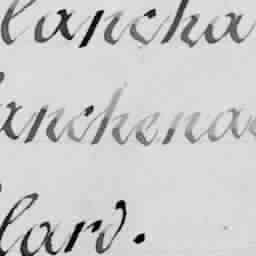 lancha
anchena
lard.